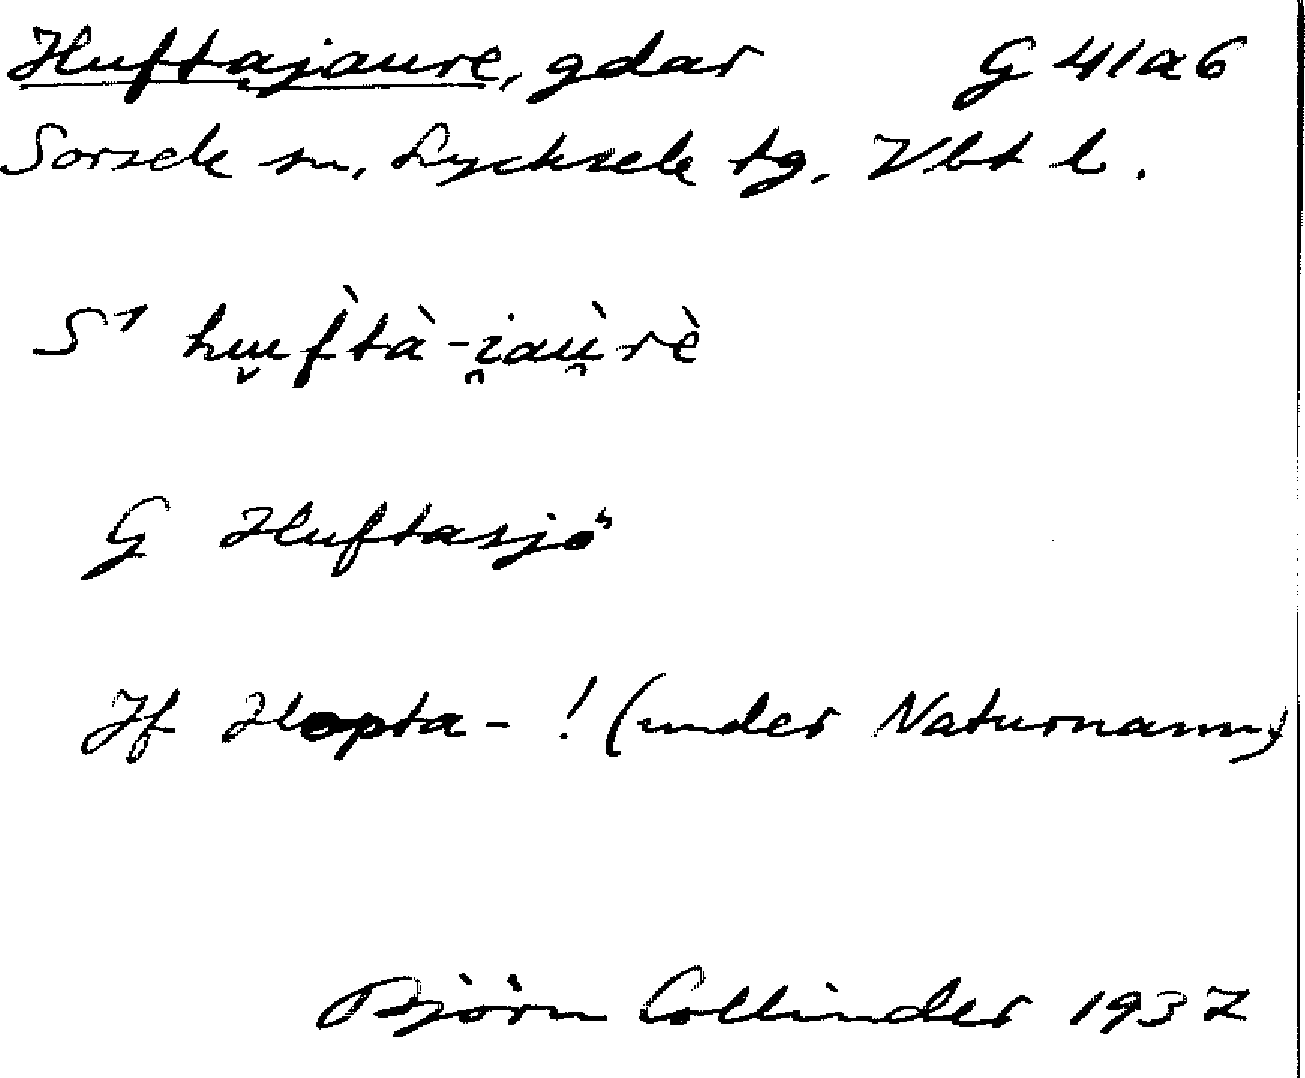 Huftajaure, gdar G 41a6
Sorsele sn, Lycksele tg. Vbt l.
S1 hu̬f̀tà-i̯aù̯rè
G Huftasjö
Jf Hopta- ! (under Naturnamn)
Björn Collinder 1937